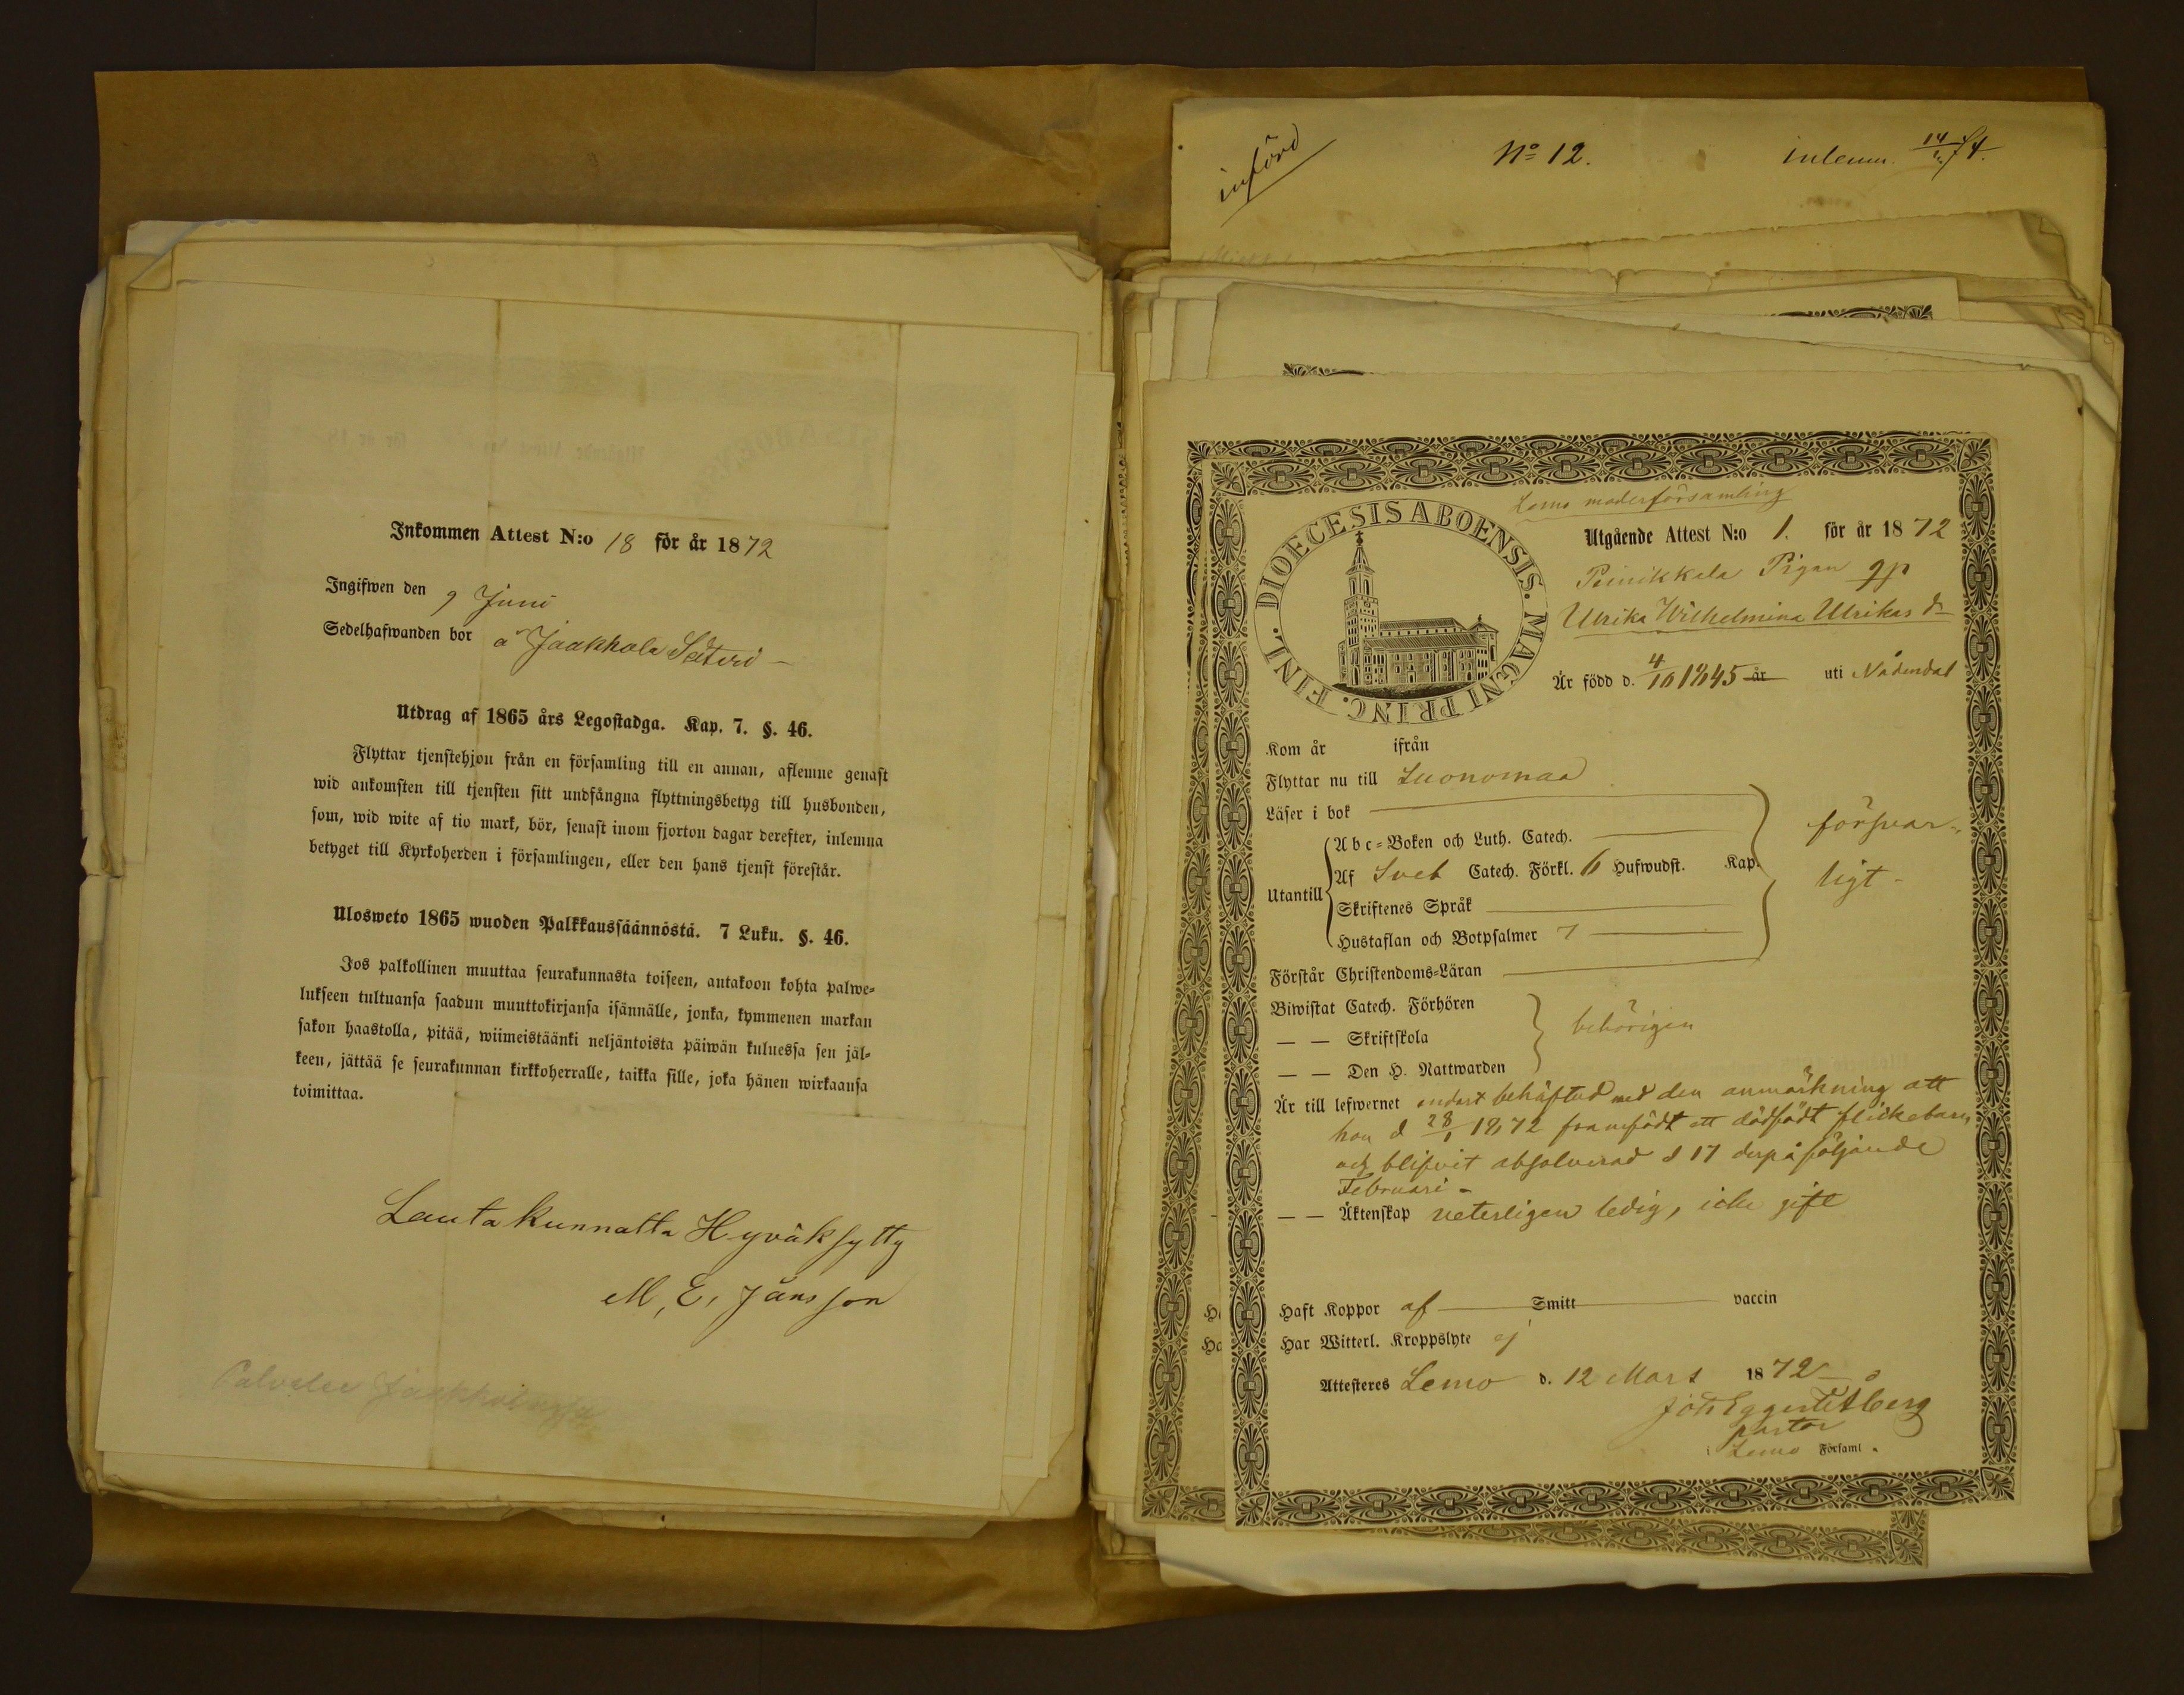 Inkommen Attest N:o 18 för år 1872
Ingifwen den 9 Juni
Sedelhafwanden bor å Jaakkola Säteri -
Utdrag af 1865 års Legostadga. Kap. 7. §. 46.
Flyttar tjenstehjon från en församling till en annan, aflemne genast
wid ankomsten till tjensten sitt undfångna flyttningsbetyg till husbonden,
som, wid wite af tio mark, bör, senast inom fjorton dagar derefter, inlemna
betyget till Kyrkoherden i församlingen, eller den hans tjenst förestår.
Ulosweto 1865 wuoden Palkkaussäännöstä. 7 Luku. §. 46.
Jos palkollinen muuttaa seurakunnasta toiseen, antakoon kohta palwe=
lukseen tultuansa saadun muuttokirjansa isännälle, jonka, kymmenen markan
sakon haastolla, pitää, wiimeistäänki neljäntoista päiwän kuluessa sen jäl=
keen, jättää se seurakunnan kirkkoherralle, taikka sille, joka hänen wirkaansa
toimittaa.
Lautakunnalta Hyväksytty
M, E, Jansson
Palvelee
införd
No 12.
inlemn. 14/ 74.
Lemo moderförsamling
DIOECESIS ABOENSIS. MAGNI PRINC. FINL.
Utgående Attest N:o 1. för år 1872
Pigan
Ulrika Wilhelmina Ulrikas dr
Är född d. 4/10 1845 år uti Nådendal
Kom år ifrån
Flyttar nu till Luonomaa
Läser i bok
försvar-
ligt -
Abc=Boken och Luth. Catech.
Utantill
Af Sveb Catech. Förkl. 6 Hufwudst. Kap.
Skriftenes Språk
Hustaflan och Botpsalmer 7
Förstår Christendoms=Läran
Biwistat Catech. Förhören
— — Skriftskola
behörigen
— — Den H. Nattwarden
Är till lefwernet endast behäftad med den anmärkning att
hon d 28/1 1872 framfödt ett dödfödt flickebarn,
och blifvit absolverad d 17 derpåföljande
Februari -
— — Äktenskap veterligen ledig, icke gift
Haft Koppor af Smitt vaccin
Har Witterl. Kroppslyte ej
Attesteres Lemo d. 12 Mars 1872
pastor
i Lemo Församl.